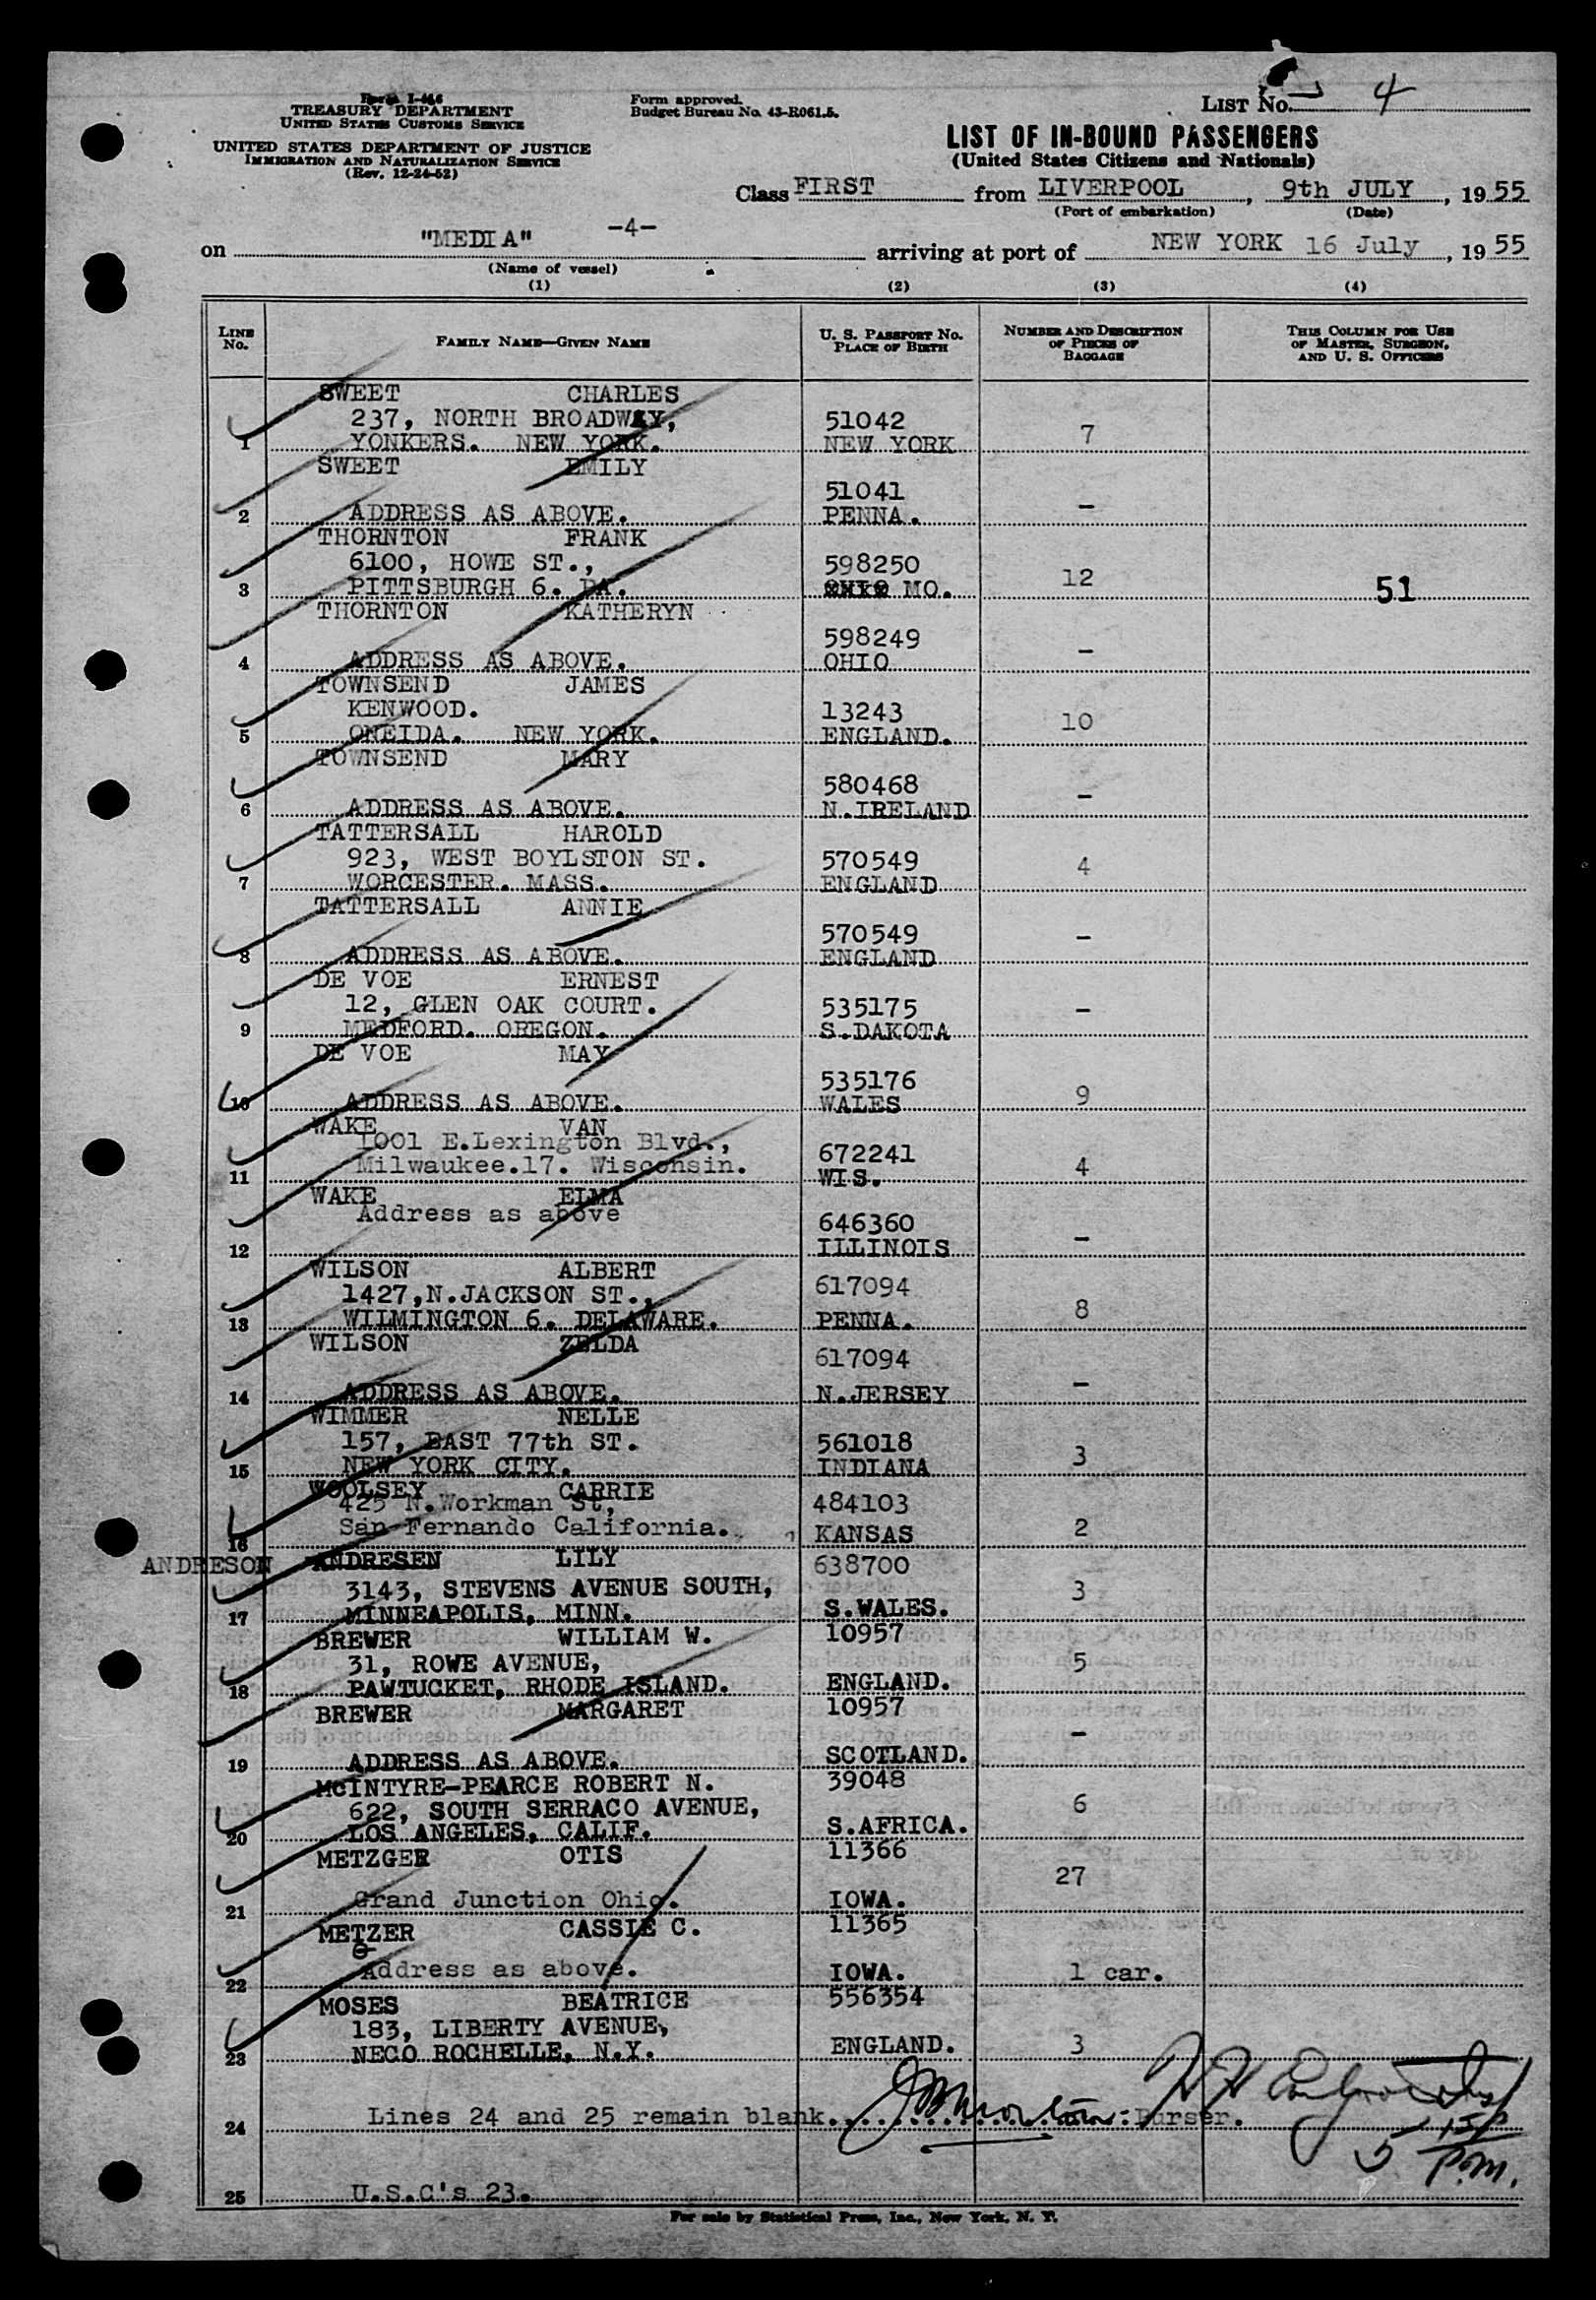 LIST NO. 4
Form I-466
TREASURY DEPARTMENT
UNITED STATES CUSTOMS SERVICE
UNITED STATES DEPARTMENT OF JUSTICE
IMMIGRATION AND NATURALIZATION SERVICE
(Rev. 12-24-52)
Form approved.
Budget Bureau No. 43-R061.5.
LIST OF IN-BOUND PASSENGERS
(United States Citizens and Nationals)
Class FIRST from LIVERPOOL, 9th JULY, 1955
(Port of embarkation) (Date)
on "MEDIA" -4- arriving at port of NEW YORK 16 July, 1955
(Name of vessel)
(1) (2) (3) (4)
LINE NO. FAMILY NAME—GIVEN NAME U. S. PASSPORT NO. PLACE OF BIRTH NUMBER AND DESCRIPTION OF PIECES OF BAGGAGE THIS COLUMN FOR USE OF MASTER, SURGEON, AND U. S. OFFICERS
SWEET CHARLES
237, NORTH BROADWAY, 51042
1 YONKERS. NEW YORK. NEW YORK 7
SWEET EMILY
51041
2 ADDRESS AS ABOVE. PENNA. -
THORNTON FRANK
6100, HOWE ST., 598250
3 PITTSBURGH 6. PA. MO. 12 51
THORNTON KATHERYN
598249
4 ADDRESS AS ABOVE. OHIO -
TOWNSEND JAMES
KENWOOD. 13243
5 ONEIDA. NEW YORK. ENGLAND. 10
TOWNSEND MARY
580468
6 ADDRESS AS ABOVE. N.IRELAND -
TATTERSALL HAROLD
923, WEST BOYLSTON ST. 570549
7 WORCESTER. MASS. ENGLAND 4
TATTERSALL ANNIE
570549
8 ADDRESS AS ABOVE. ENGLAND -
DE VOE ERNEST
12, GLEN OAK COURT. 535175
9 MEDFORD. OREGON. S.DAKOTA -
DE VOE MAY
535176
10 ADDRESS AS ABOVE. WALES 9
WAKE VAN
1001 E.Lexington Blvd., 672241
11 Milwaukee.17. Wisconsin. WIS. 4
WAKE ELMA
Address as above 646360
12 ILLINOIS -
WILSON ALBERT
1427,N.JACKSON ST., 617094
13 WILMINGTON 6. DELAWARE. PENNA. 8
WILSON ZELDA
617094
14 ADDRESS AS ABOVE. N.JERSEY -
WIMMER NELLE
157, EAST 77th ST. 561018
15 NEW YORK CITY. INDIANA 3
WOOLSEY CARRIE
425 N.Workman St, 484103
16 San Fernando California. KANSAS 2
ANDRESON ANDRESEN LILY 638700
3143, STEVENS AVENUE SOUTH, 3
17 MINNEAPOLIS, MINN. S.WALES.
BREWER WILLIAM W. 10957
31, ROWE AVENUE, 5
18 PAWTUCKET, RHODE ISLAND. ENGLAND.
BREWER MARGARET 10957
-
19 ADDRESS AS ABOVE. SCOTLAND.
McINTYRE-PEARCE ROBERT N. 39048
622, SOUTH SERRACO AVENUE, 6
20 LOS ANGELES, CALIF. S.AFRICA.
METZGER OTIS 11366
27
21 Grand Junction Ohio. IOWA.
METZER CASSIE C. 11365
G
22 Address as above. IOWA. 1 car.
MOSES BEATRICE 556354
183, LIBERTY AVENUE,
23 NECO ROCHELLE, N.Y. ENGLAND. 3
24 Lines 24 and 25 remain blank. Purser.
5 15/P.M.
25 U.S.C's 23.
For sale by Statistical Press, Inc., New York, N. Y.